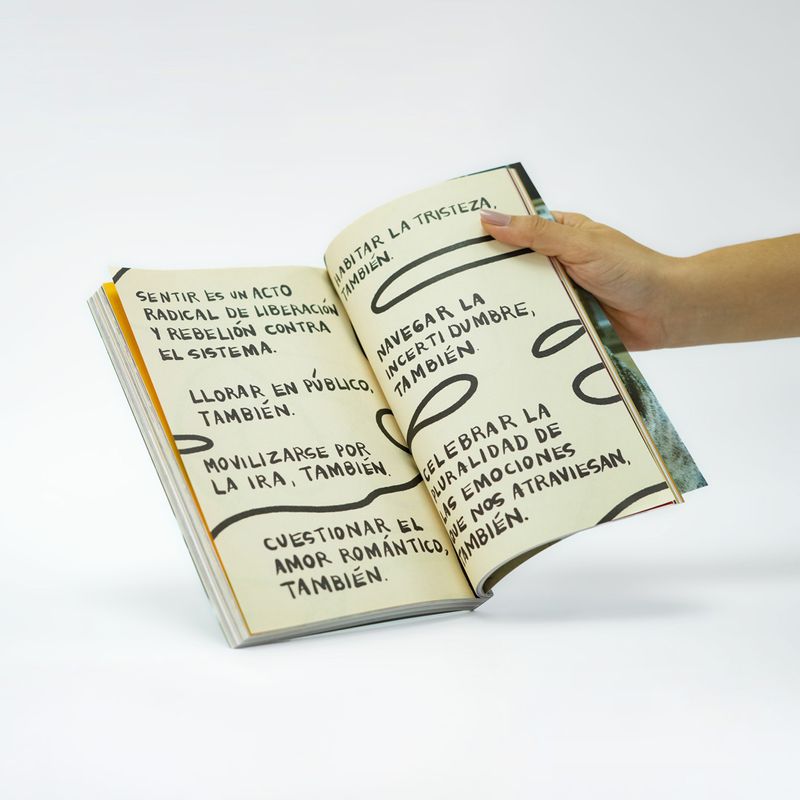 SENTIR ES UN ACTO
RADICAL DE LIBERACIÓN
Y REBELIÓN CONTRA
EL SISTEMA.
LLORAR EN PÚBLICO,
TAMBIÉN.
MOVILIZARSE POR
LA IRA, TAMBIÉN.
CUESTIONAR EL
AMOR ROMÁNTICO,
TAMBIÉN.
HABITAR LA TRISTEZA,
TAMBIÉN.
NAVEGAR LA
INCERTIDUMBRE,
TAMBIÉN.
CELEBRAR LA
PLURALIDAD DE
LAS EMOCIONES
QUE NOS ATRAVIESAN,
TAMBIÉN.